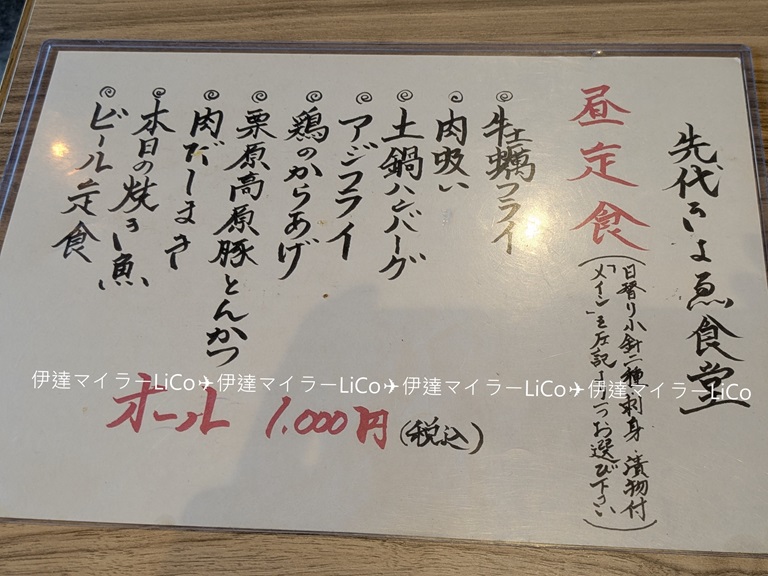 先代きよゑ食堂
昼定食
(日替り小鉢二種・刺身・漬物付
「メイン」を左記より一つお選び下さい)
牡蠣フライ
肉吸い
土鍋ハンバーグ
アジフライ
鶏のからあげ
栗原高原豚とんかつ
肉だしまき
本日の焼き魚
ビール定食
オール 1.000円(税込)
伊達マイラーLiCo✈伊達マイラーLiCo✈伊達マイラーLiCo✈伊達マイラーLiCo